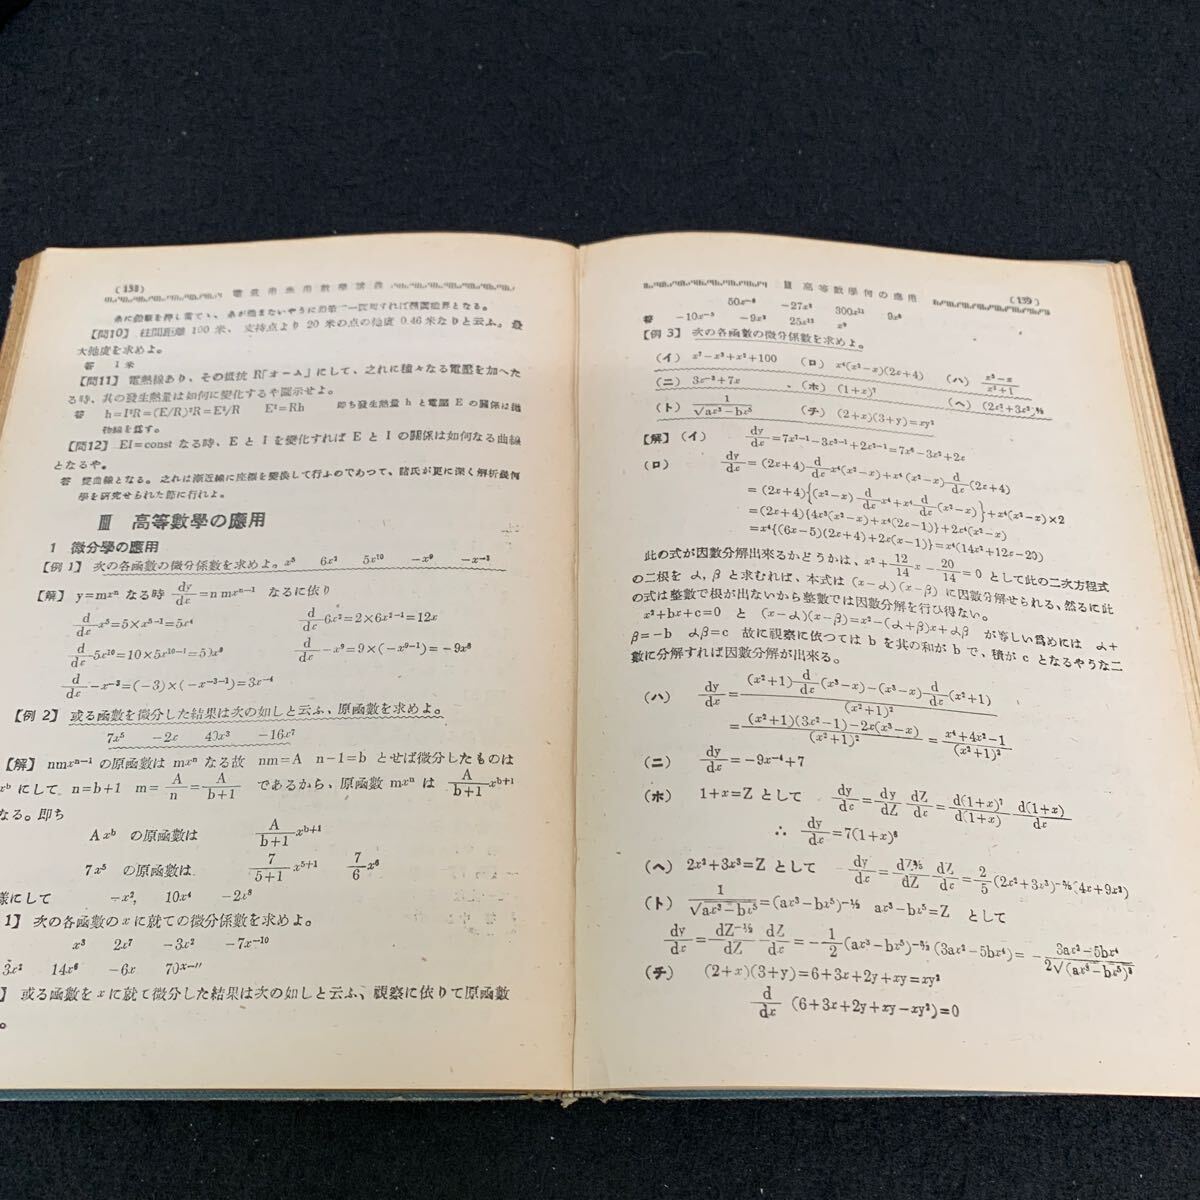 (138) 電氣用應用數學講義
[問10] 柱間距離 100 米、支持点より 20 米の点の弛度 0.46 米なりと云ふ。最
大弛度を求めよ。
答 1 米
[問11] 電熱線あり、その抵抗 R「オーム」にして、之れに種々なる電壓を加へた
る時、其の發生熱量は如何に變化するや圖示せよ。
答 h=I²R=(E/R)²R=E²/R E²=Rh 即ち發生熱量 h と電壓 E の關係は抛
物線を爲す。
[問12] EI=const なる時、E と I を變化すれば E と I の關係は如何なる曲線
となるや。
答 雙曲線となる。之れは漸近線に座標を變換して行ふのであつて、諸氏が更に深く解析幾何
學を研究せられた節に行れよ。
Ⅲ 高等數學の應用
1 微分學の應用
[例 1] 次の各函數の微分係數を求めよ。x⁵ 6x² 5x¹⁰ −x⁹ −x⁻³
[解] y=mxⁿ なる時 dy/dx=n mxⁿ⁻¹ なるに依り
d/dx x⁵=5×x⁵⁻¹=5x⁴ d/dx 6x²=2×6x²⁻¹=12x
d/dx 5x¹⁰=10×5x¹⁰⁻¹=50x⁹ d/dx −x⁹=9×(−x⁹⁻¹)=−9x⁸
d/dx −x⁻³=(−3)×(−x⁻³⁻¹)=3x⁻⁴
[例 2] 或る函數を微分した結果は次の如しと云ふ、原函數を求めよ。
7x⁵ −2x 40x³ −16x⁷
[解] nmxⁿ⁻¹ の原函數は mxⁿ なる故 nm=A n−1=b とせば微分したものは
xᵇ にして n=b+1 m=A/n=A/(b+1) であるから、原函數 mxⁿ は A/(b+1) xᵇ⁺¹
なる。即ち
Axᵇ の原函數は A/(b+1) xᵇ⁺¹
7x⁵ の原函數は 7/(5+1) x⁵⁺¹ 7/6 x⁶
樣にして −x², 10x⁴ −2x⁸
1] 次の各函數の x に就ての微分係數を求めよ。
x³ 2x⁷ −3x² −7x⁻¹⁰
3x² 14x⁶ −6x 70x⁻¹¹
] 或る函數を x に就て微分した結果は次の如しと云ふ、視察に依りて原函數
。
Ⅲ 高等數學の應用 (139)
50x⁻⁶ −27x² 300x¹¹ 9x⁸
答 −10x⁻⁵ −9x³ 25x¹² x⁹
[例 3] 次の各函數の微分係數を求めよ。
(イ) x⁷−x³+x²+100 (ロ) x⁴(x²−x)(2x+4) (ハ) (x³−x)/(x²+1)
(ニ) 3x⁻³+7x (ホ) (1+x)⁷ (ヘ) (2x²+3x³)^(2/5)
(ト) 1/√(ax³−bx⁵) (チ) (2+x)(3+y)=xy²
[解] (イ) dy/dx=7x⁷⁻¹−3x³⁻¹+2x²⁻¹=7x⁶−3x²+2x
(ロ) dy/dx=(2x+4) d/dx x⁴(x²−x)+x⁴(x²−x) d/dx (2x+4)
=(2x+4){(x²−x) d/dx x⁴+x⁴ d/dx (x²−x)}+x⁴(x²−x)×2
=(2x+4){4x³(x²−x)+x⁴(2x−1)}+2x⁴(x²−x)
=x⁴{(6x−5)(2x+4)+2x(x−1)}=x⁴(14x²+12x−20)
此の式が因數分解出來るかどうかは、x²+12/14 x−20/14=0 として此の二次方程式
の二根を α, β と求むれば、本式は (x−α)(x−β) に因數分解せられる、然るに此
の式は整數で根が出ないから整數では因數分解を行ひ得ない。
x²+bx+c=0 と (x−α)(x−β)=x²−(α+β)x+αβ が等しい爲めには α+
β=−b αβ=c 故に視察に依つては b を其の和が b で、積が c となるやうな二
數に分解すれば因數分解が出來る。
(ハ) dy/dx=((x²+1) d/dx (x³−x)−(x³−x) d/dx (x²+1))/(x²+1)²
=((x²+1)(3x²−1)−2x(x³−x))/(x²+1)²=(x⁴+4x²−1)/(x²+1)²
(ニ) dy/dx=−9x⁻⁴+7
(ホ) 1+x=Z として dy/dx=dy/dZ dZ/dx=d(1+x)⁷/d(1+x) d(1+x)/dx
∴ dy/dx=7(1+x)⁶
(ヘ) 2x²+3x³=Z として dy/dx=dZ^(2/5)/dZ dZ/dx=2/5 (2x²+3x³)^(−3/5) (4x+9x²)
(ト) 1/√(ax³−bx⁵)=(ax³−bx⁵)^(−1/2) ax³−bx⁵=Z として
dy/dx=dZ^(−1/2)/dZ dZ/dx=−1/2 (ax³−bx⁵)^(−3/2) (3ax²−5bx⁴)=−(3ax²−5bx⁴)/(2√(ax³−bx⁵)³)
(チ) (2+x)(3+y)=6+3x+2y+xy=xy²
d/dx (6+3x+2y+xy−xy²)=0